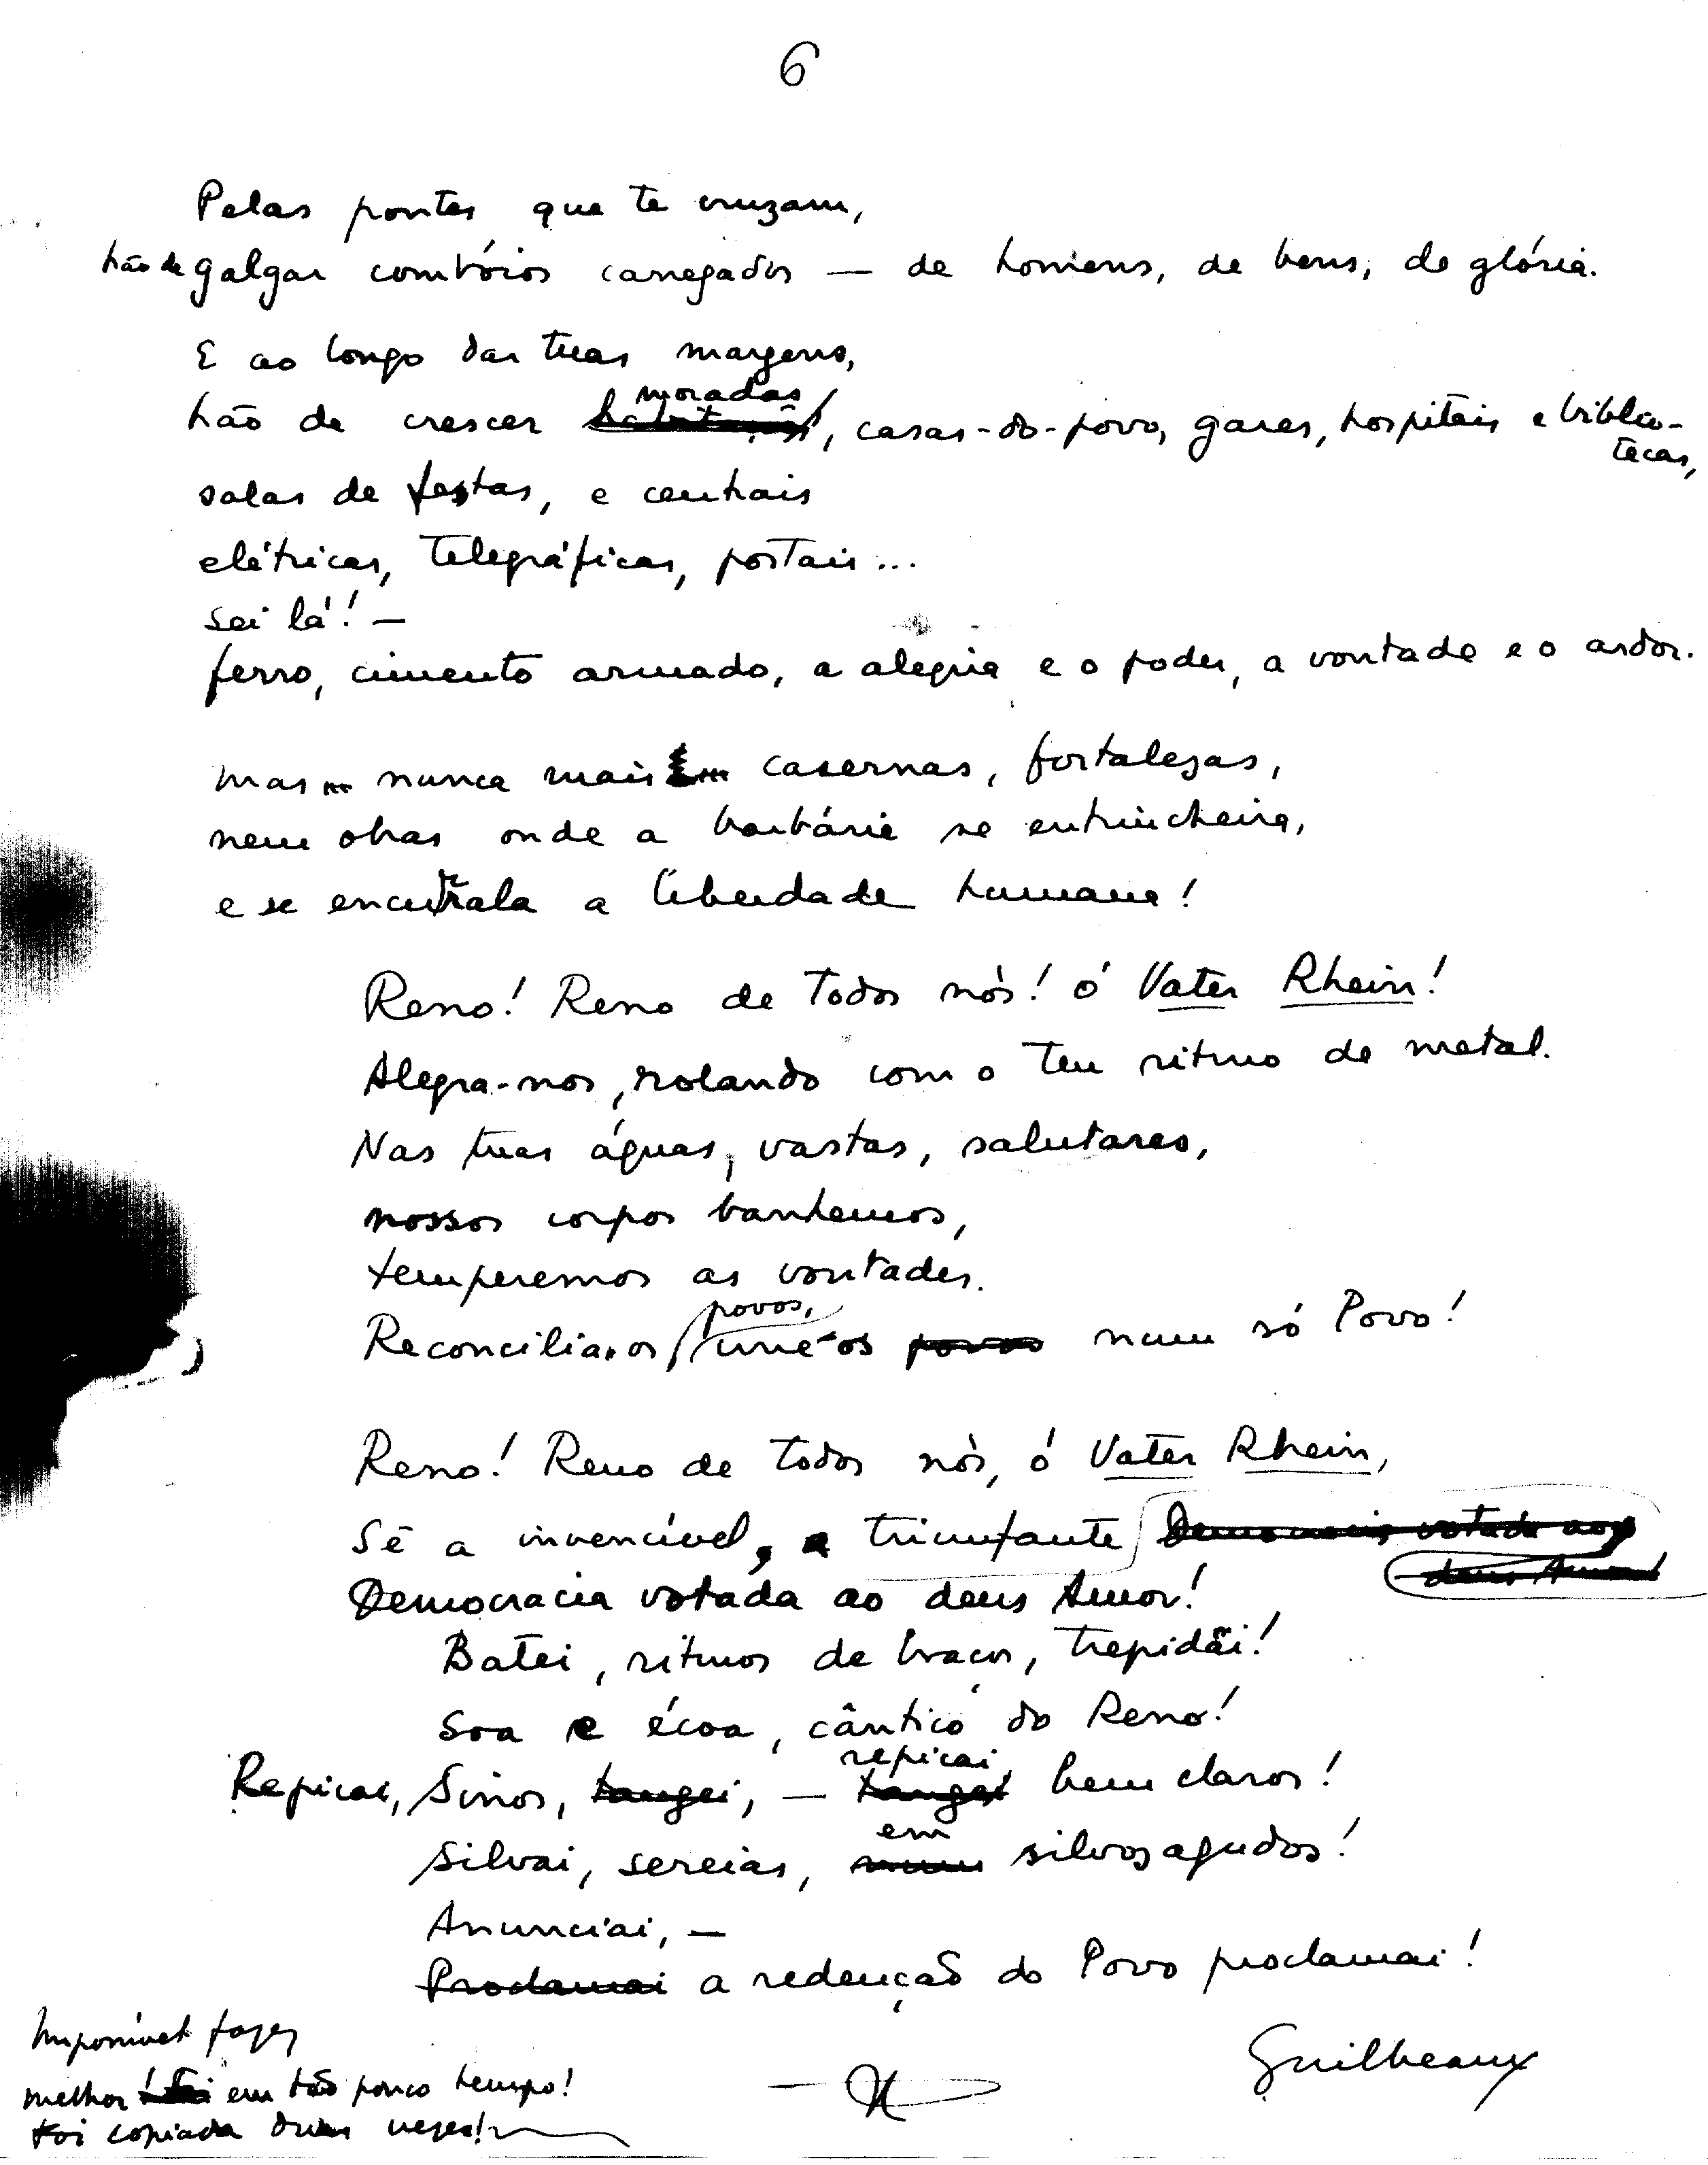 6
Pelas pontes que te cruzam,
hão de galgar combóios carregados — de homens, de bens, de glória.
E ao longo das tuas margens,
moradas
hão de crescer habitações, casas-do-povo, gares, hospitais e biblio-
tecas,
salas de festas, e centrais
elétricas, telegráficas, postais...
sei lá! —
ferro, cimento armado, a alegria e o poder, a vontade e o ardor.
mas... nunca mais... casernas, fortalezas,
nem obras onde a barbárie se entrincheira,
e se encurrala a liberdade humana!
Reno! Reno de todos nós! ó Vater Rhein!
Alegra-nos, rolando com o teu ritmo de metal.
Nas tuas águas, vastas, salutares,
nossos corpos banhemos,
temperemos as vontades.
povos,
Reconcilia-os une-os povos num só Povo!
Reno! Reno de todos nós, ó Vater Rhein,
Sê a invencível, a triunfante Democracia votada ao
deus Amor!
Democracia votada ao deus Amor!
Batei, ritmos de braços, trepidai!
Soa e écoa, cântico do Reno!
repicai
Repicai, Sinos, tangei, — tangei bem claros!
em
Silvai, sereias, num silvos agudos!
Anunciai, —
Proclamai a redenção do Povo proclamai!
Guilbeaux
Impossível fazer
melhor em tão pouco tempo!
Foi copiada duas vezes!